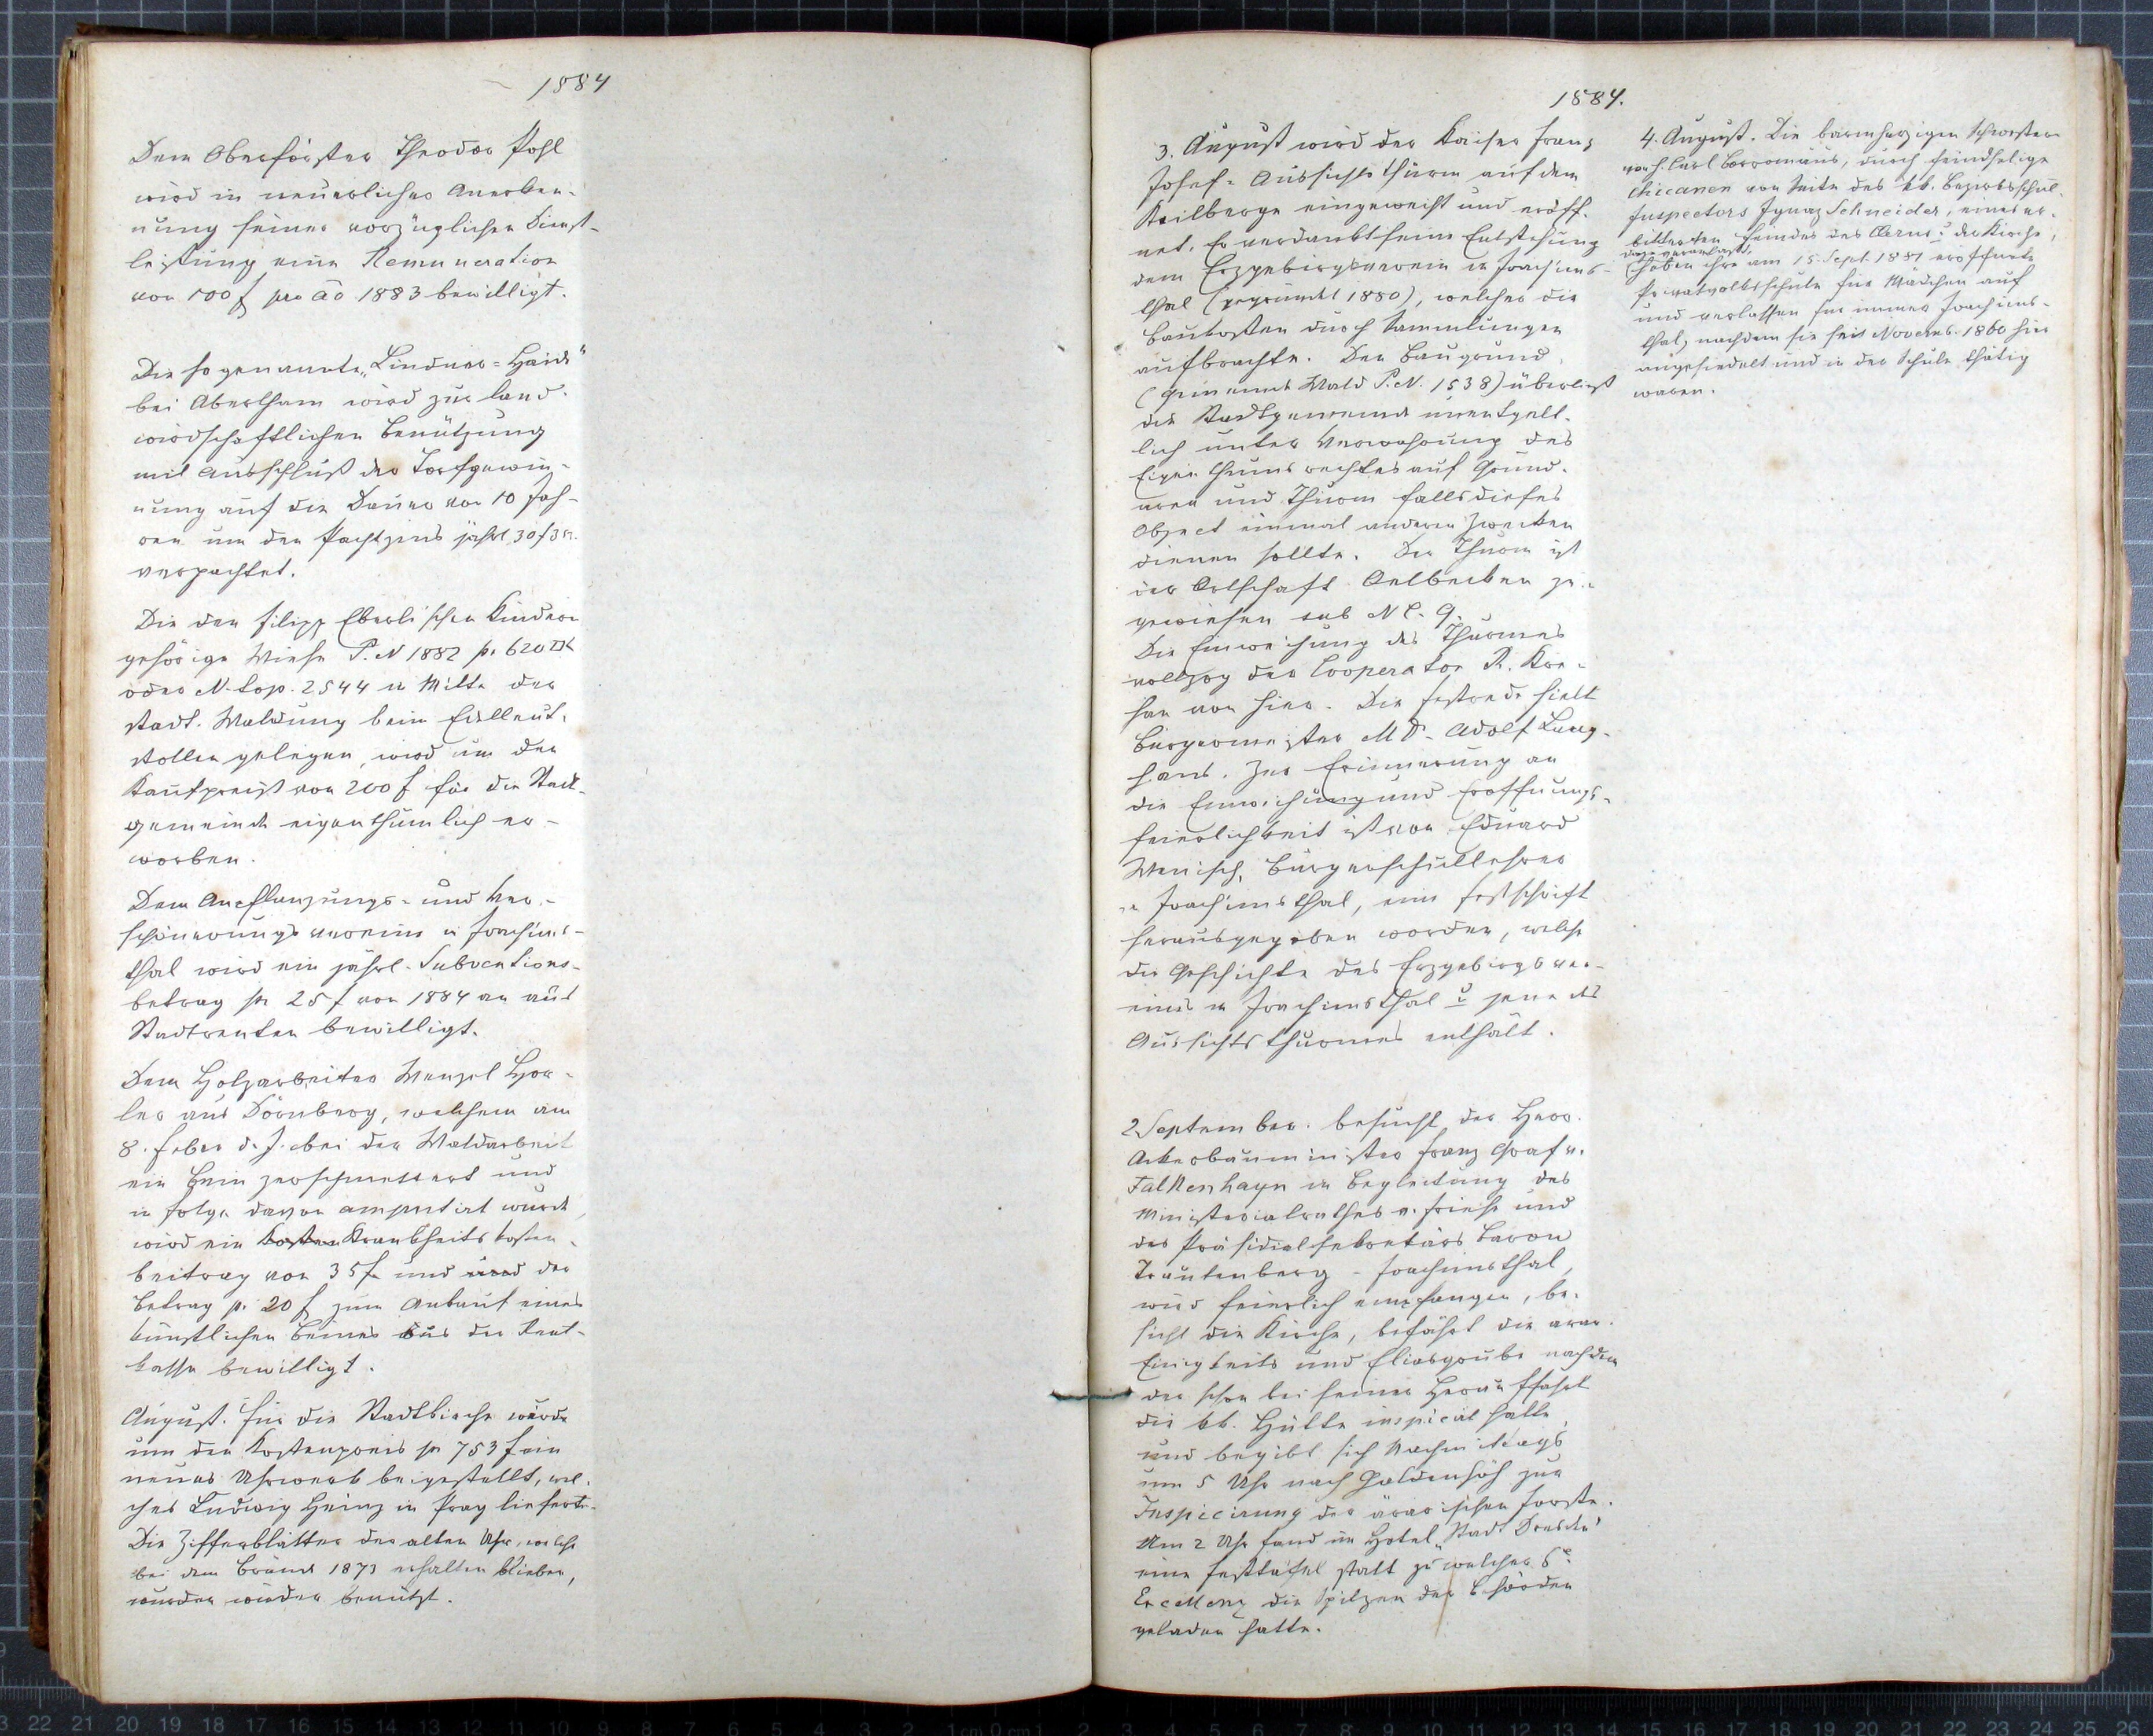 1884
Dem Oberförster Theodor Pohl
wird in neuerlicher Anerken-
nung seiner vorzüglichen Dienst-
leistung eine Remuneration
von 100 f pro ao 1883 bewilligt.
Die sogenannte „Lindner-Haide"
bei Abertham wird zur land-
wirdschaftlichen Benützung
mit Ausschluß der Torfgewin-
nung auf die Dauer von 10 Jah-
ren um den Pachtzins jährl. 30 f
verpachtet.
Die den Filipp Eberl'schen Kindern
gehörige Wiese P. N 1882 p. 620
oder N. Top. 2544 in Mitte der
stadt. Waldung beim Edelleut-
stollen gelegen, wird um den
Kaufpreiß von 200 f für die Stadt-
gemeinde eigenthümlich er-
worben.
Dem Anpflanzungs- und Ver-
schönerungsvereine in Joachims-
thal wird ein jährl. Subventions-
betrag pr 25 f von 1884 an aus
Stadtrenten bewilligt.
Dem Holzarbeiter Wenzel Hor-
ler aus Dürnberg, welchem am
8. Feber d. J. bei der Waldarbeit
ein Bein zerschmettert und
in Folge davon amputirt wurde,
wird ein Kosten Krankheitskosten-
beitrag von 35 f und und der
Betrag p. 20 f zum Ankauf eines
künstlichen Beines aus der Rent-
kasse bewilligt.
August. Für die Stadtkirche wurde
um den Kostenpreis pr 753 f ein
neues Uhrwerk beigestellt, wel-
ches Ludwig Heinz in Prag lieferte.
Die Zifferblätter der alten Uhr, welche
bei dem Brande 1873 erhalten blieben,
wurden wieder benützt.
1884.
3. August wird der Kaiser Franz
Josef-Aussichtsthurm auf dem
Keilberge eingeweiht und eröff-
net. Er verdankt seine Entstehung
dem Erzgebirgsverein in Joachims-
thal (gegründet 1880), welcher die
Baukosten durch Sammlungen
aufbrachte. Den Baugrund
(Gemeinde Wald P. N. 1538) überließ
die Stadtgemeinde unentgelt-
lich unter Verwahrung des
Eigenthumsrechtes auf Grund-
area und Thurm falls dieses
Object einmal anderen Zwecken
dienen sollte. Der Thurm ist
der Ortschaft Oelbecken zu-
gewiesen sub N C. 9.
Die Einweihung des Thurmes
vollzog der Cooperator R. Kre-
han von hier. Die Festrede hielt
Bürgermeister M Dr. Adolf Lang-
hans. Zur Erinnerung an
die Einweihung und Eröffnungs-
feierlichkeit ist von Eduard
Wenisch, Bürgerschullehrer
in Joachimsthal, eine Festschrift
herausgegeben worden, welche
die Geschichte des Erzgebirgsver-
eines in Joachimsthal u jene des
Aussichtsthurmes enthält.
2 September. besucht der Herr
Ackerbauminister Franz Graf v.
Falkenhayn in Begleitung des
Ministerialrathes v. Friese und
des Präsidialsekretärs Baron
Trautenberg - Joachimsthal,
wird feierlich empfangen, be-
sieht die Kirche, befährt die arar.
Einigkeits und Eliasgrube nachdem
der schon bei seiner Herauffahrt
die kk. Hütte inspicirt hatte,
und begibt sich Nachmittags
um 5 Uhr nach Goldenhöh zur
Inspicirung der ärarischen Forste.
Um 2 Uhr fand im Hotel „Stadt Dresden"
eine Festtafel statt zu welcher Se.
Excellenz die Spitzen der Behörden
geladen hatte.
4. August. Die barmherzigen Schwestern
von h. Carl Borromäus, durch feindselige
Chicanen von Seite des kk. Bezirksschul-
Inspectors Ignaz Schneider, eines er-
bitterten Feindes des Clerus u. der Kirche,
dazu veranlasst,
heben ihre am 15. Sept. 1881 eröffnete
Privatvolksschule für Mädchen auf
und verlassen für immer Joachims-
thal, nachdem sie seit Novemb. 1860 hier
angesiedelt und in der Schule thätig
waren.